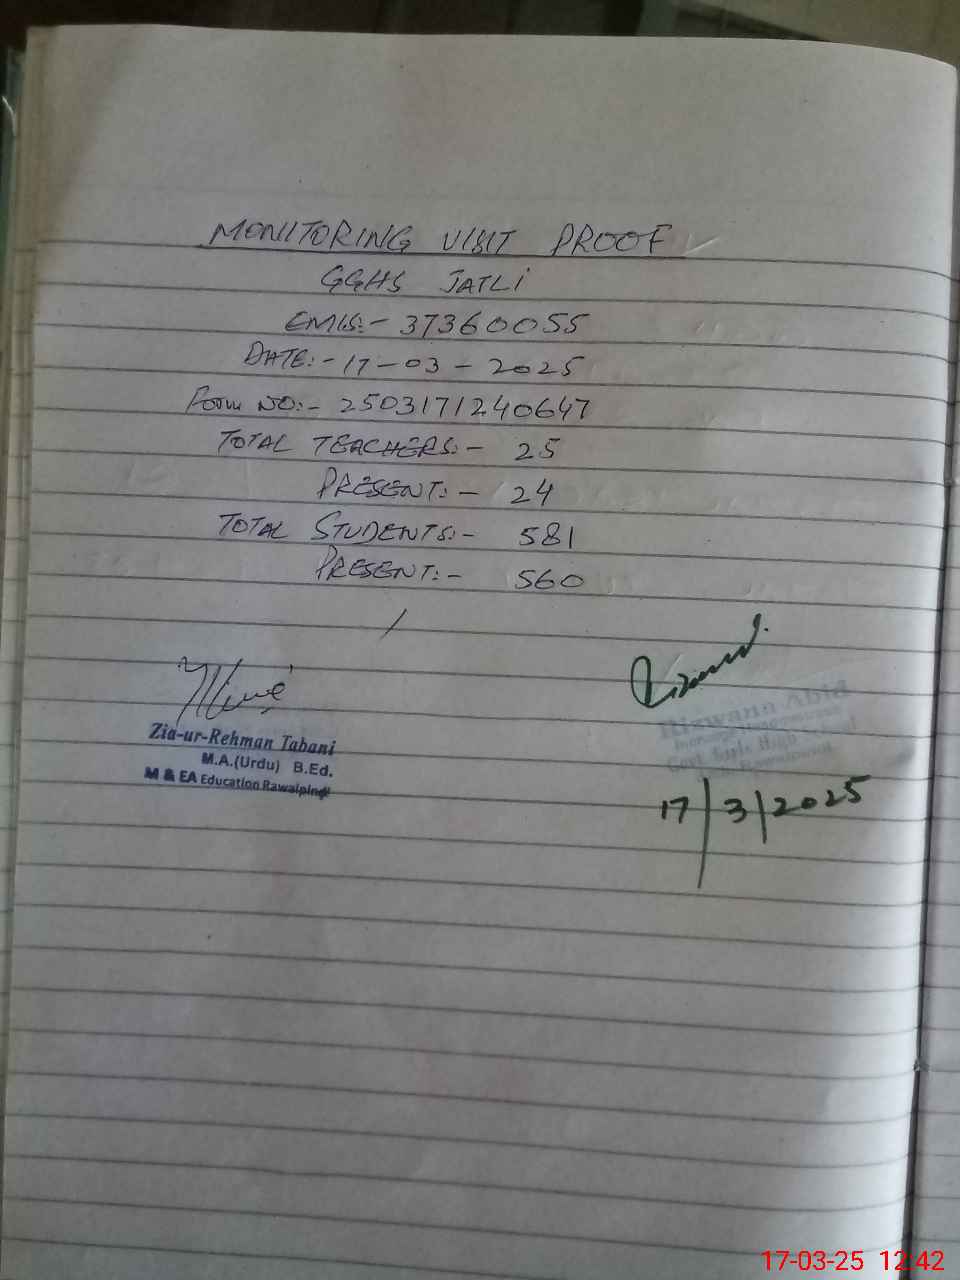 MONITORING VISIT PROOF
GGHS JATLI
EMIS:- 37360055
DATE:- 17-03-2025
Form NO:- 2503171240647
TOTAL TEACHERS:- 25
PRESENT:- 24
TOTAL STUDENTS:- 581
PRESENT:- 560
Zia-ur-Rehman Tabani
M.A.(Urdu) B.Ed.
M & EA Education Rawalpindi
Rizwana Abid
Incharge Headmistress
Govt. Girls High School
17/3/2025
17-03-25 12:42